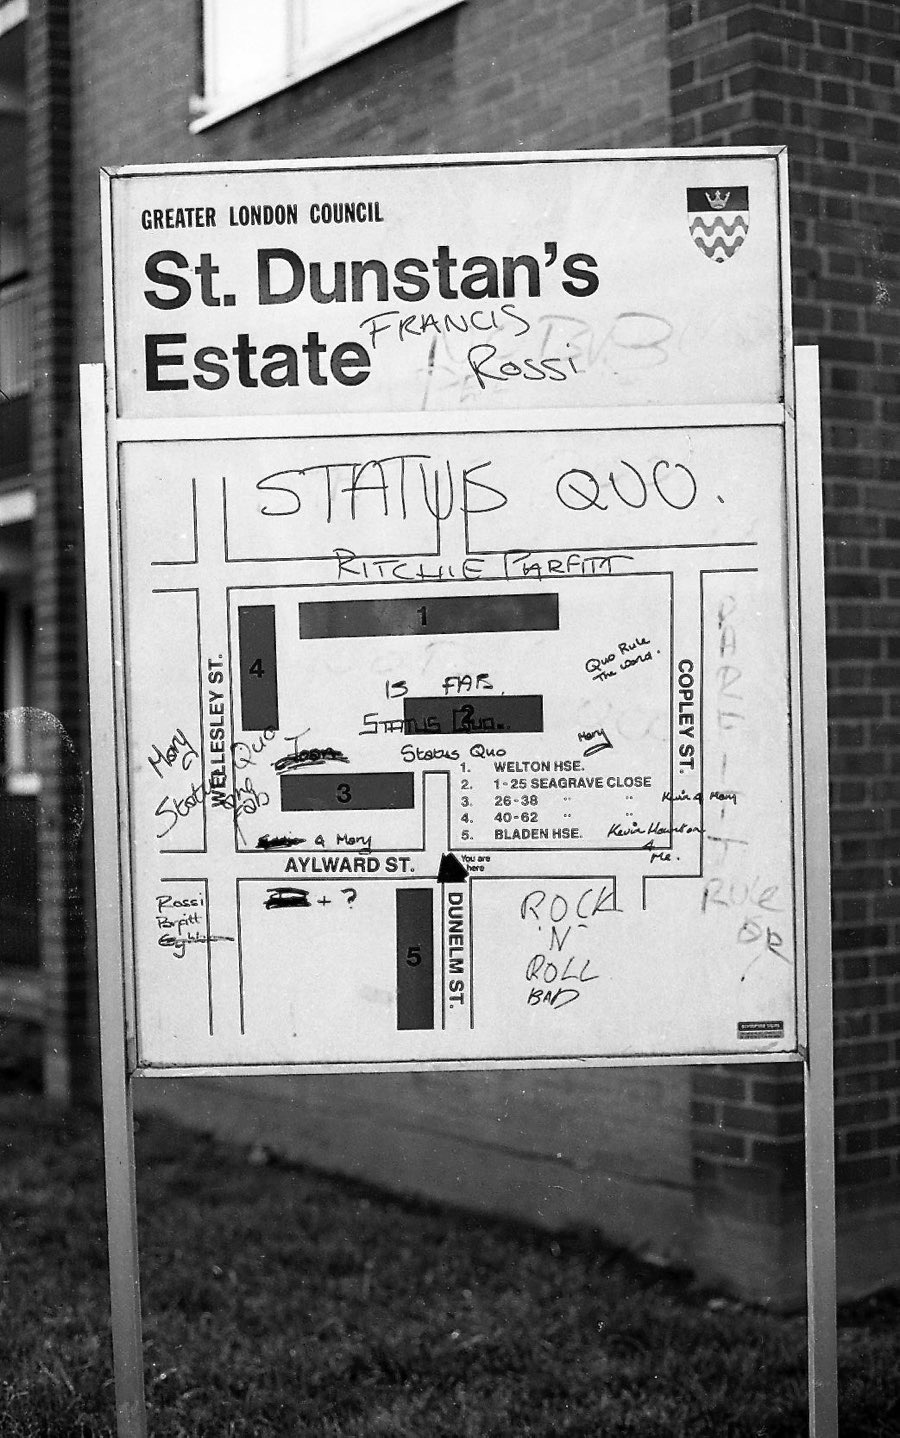 GREATER LONDON COUNCIL
St. Dunstan's
Estate
FRANCIS
Rossi
STATUS QUO.
RITCHIE PARFITT
1
4
WELLESLEY ST.
COPLEY ST.
PARFITT
RULE
OR
Quo Rule
The world.
IS FAB.
2
STATUS QUO..
Status Quo
Mary
Mary
Status Quo
are
Fab
3
1. WELTON HSE.
2. 1-25 SEAGRAVE CLOSE
3. 26-38 " "
4. 40-62 " "
5. BLADEN HSE.
Kevin & Mary
Kevin
& Me.
& Mary
AYLWARD ST.
You are
here
+ ?
Rossi
Parfitt
5
DUNELM ST.
ROCK
'N'
ROLL
BAD